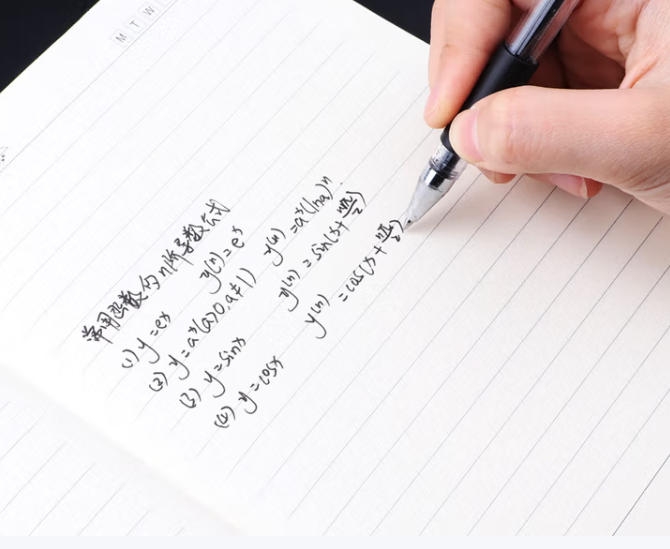 M T W
常用函数的n阶导数公式
(1) y = eˣ y⁽ⁿ⁾ = eˣ
(2) y = aˣ (a>0, a≠1) y⁽ⁿ⁾ = aˣ(lna)ⁿ
(3) y = sinx y⁽ⁿ⁾ = sin(x + nπ/2)
(4) y = cosx y⁽ⁿ⁾ = cos(x + nπ/2)